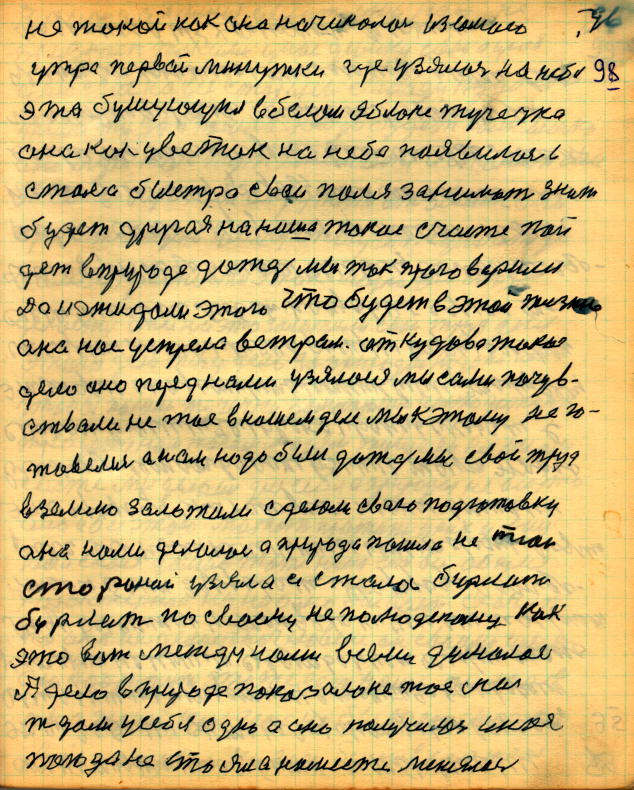 96
не такой как она начиналася из самого
утра первой минутки где узялася на небе 98
эта бушующая в белом яблоке тучечка
она как цветок на небе появилася и
стала быстро свои поля занимать знать
будет другая на наша такое счастье пой
дет в природе дождь мы так этого верили
да и ожидали этого Что будет в этой жизни
она нас устрела ветрам. откудова такое
дело оно перед нами узялося мы сами почув-
ствали не тое в нашем деле мы к этому не го-
товелися а нам надо были дожди мы свой труд
в землю заложали сделом свого подготовку
она нами делалася а природа пошла не тою
стороной узяла и стала бурлить
бурлит по своему не полюдскому как
это вот между нами всеми думалося
А дело в природе показало не тое мы
ждали у себя одно а оно получилося иное
погода не стояла на месте менялася